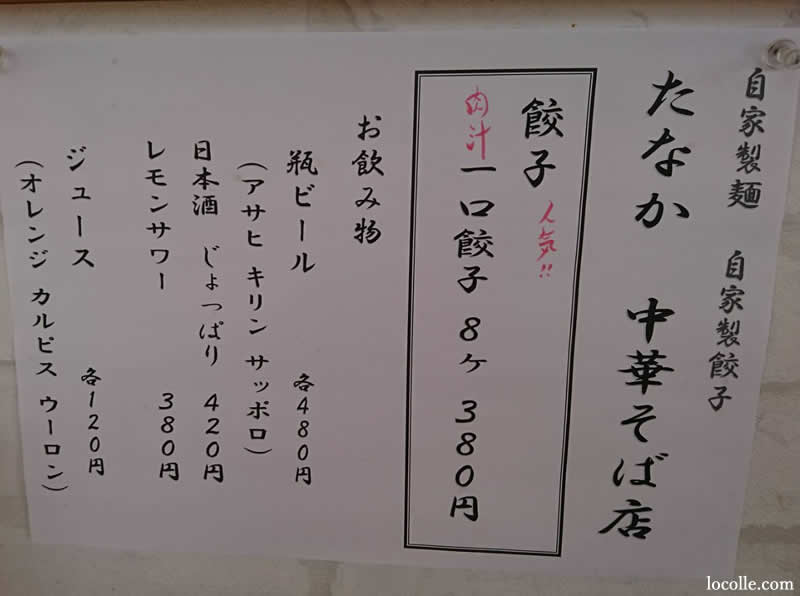 自家製麺　自家製餃子
たなか　中華そば店
餃子　人気!!
肉汁一口餃子　8ヶ　380円
お飲み物
瓶ビール　各480円
（アサヒ　キリン　サッポロ）
日本酒　じょっぱり　420円
レモンサワー　380円
ジュース　各120円
（オレンジ　カルピス　ウーロン）
locolle.com